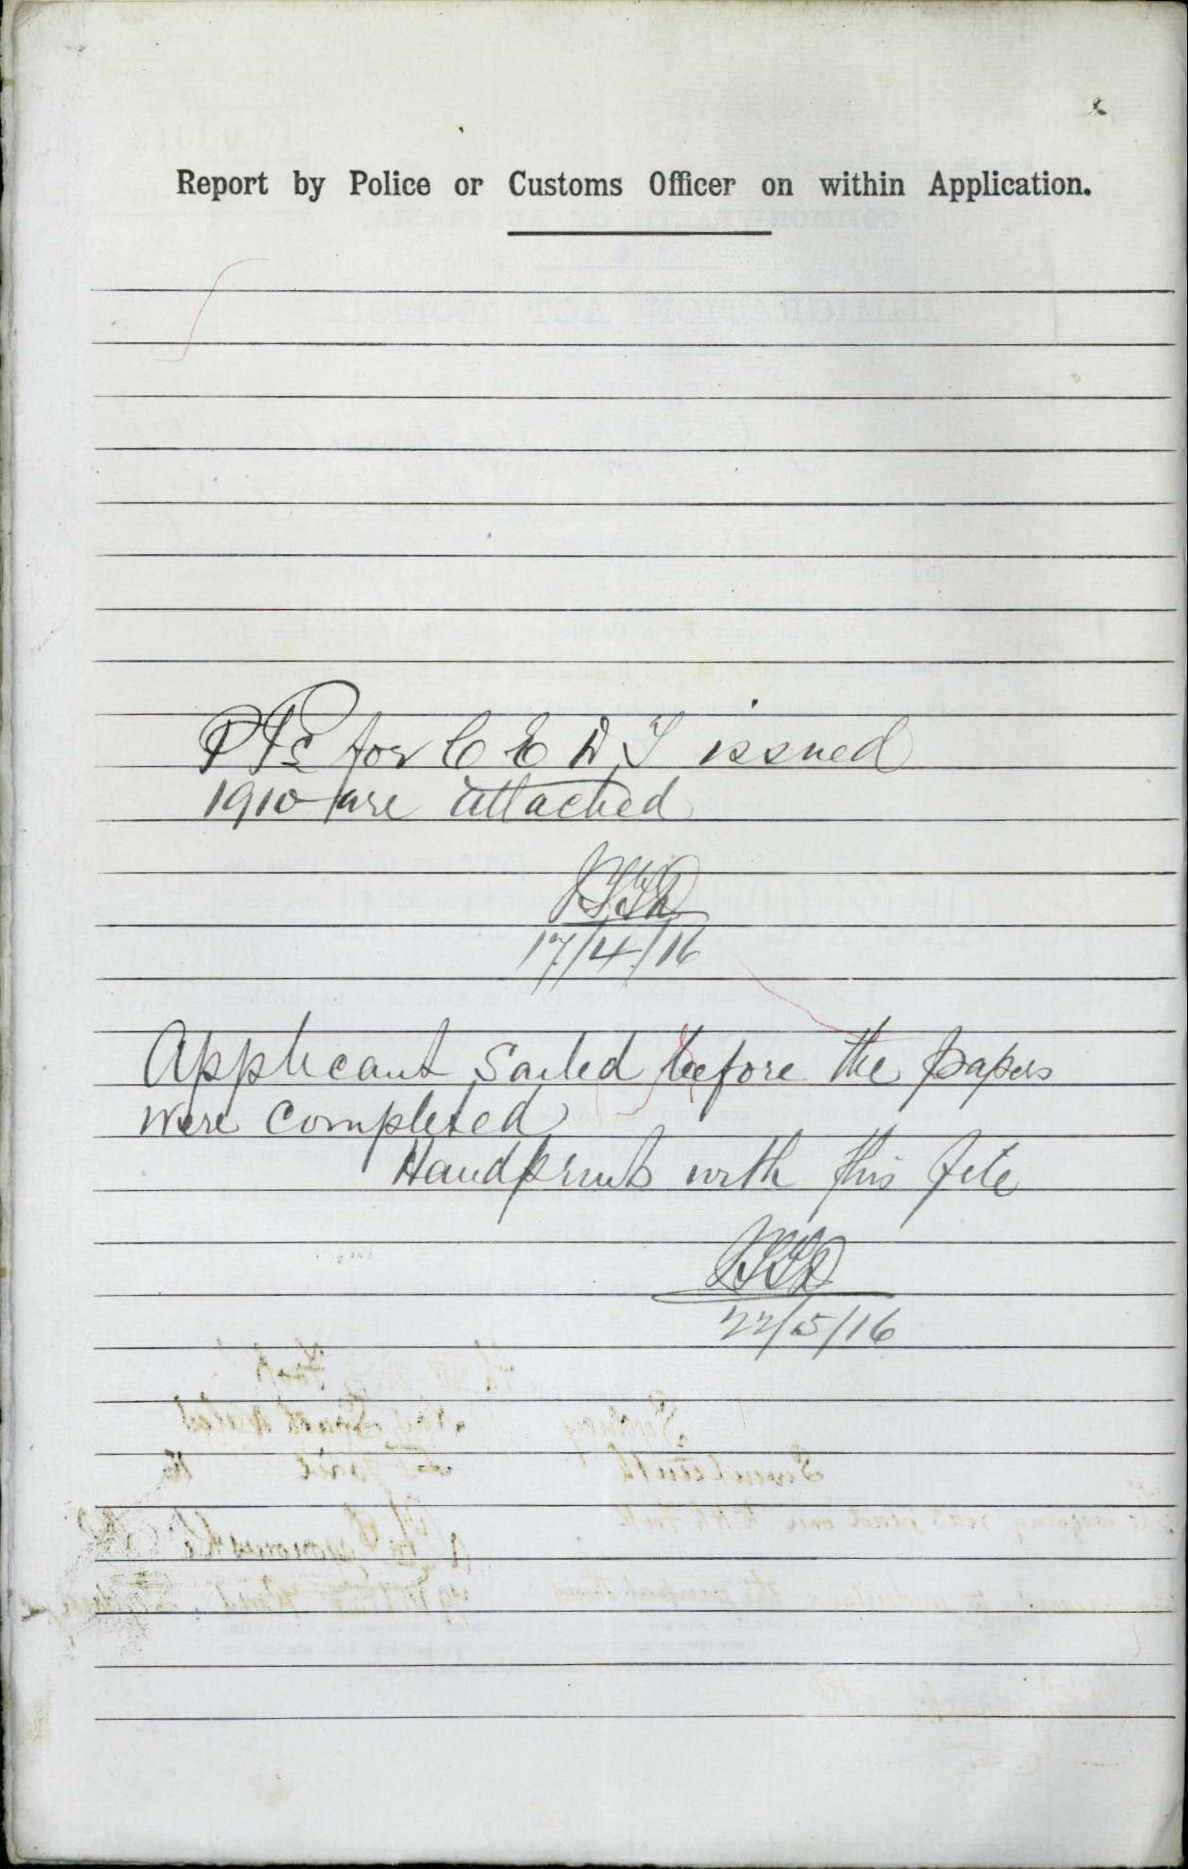 Report by Police or Customs Officer on within Application.
for C E D T issued
1910 are attached
17/4/16
Applicant Sailed before the papers
were completed
Handprints with this file
22/5/16